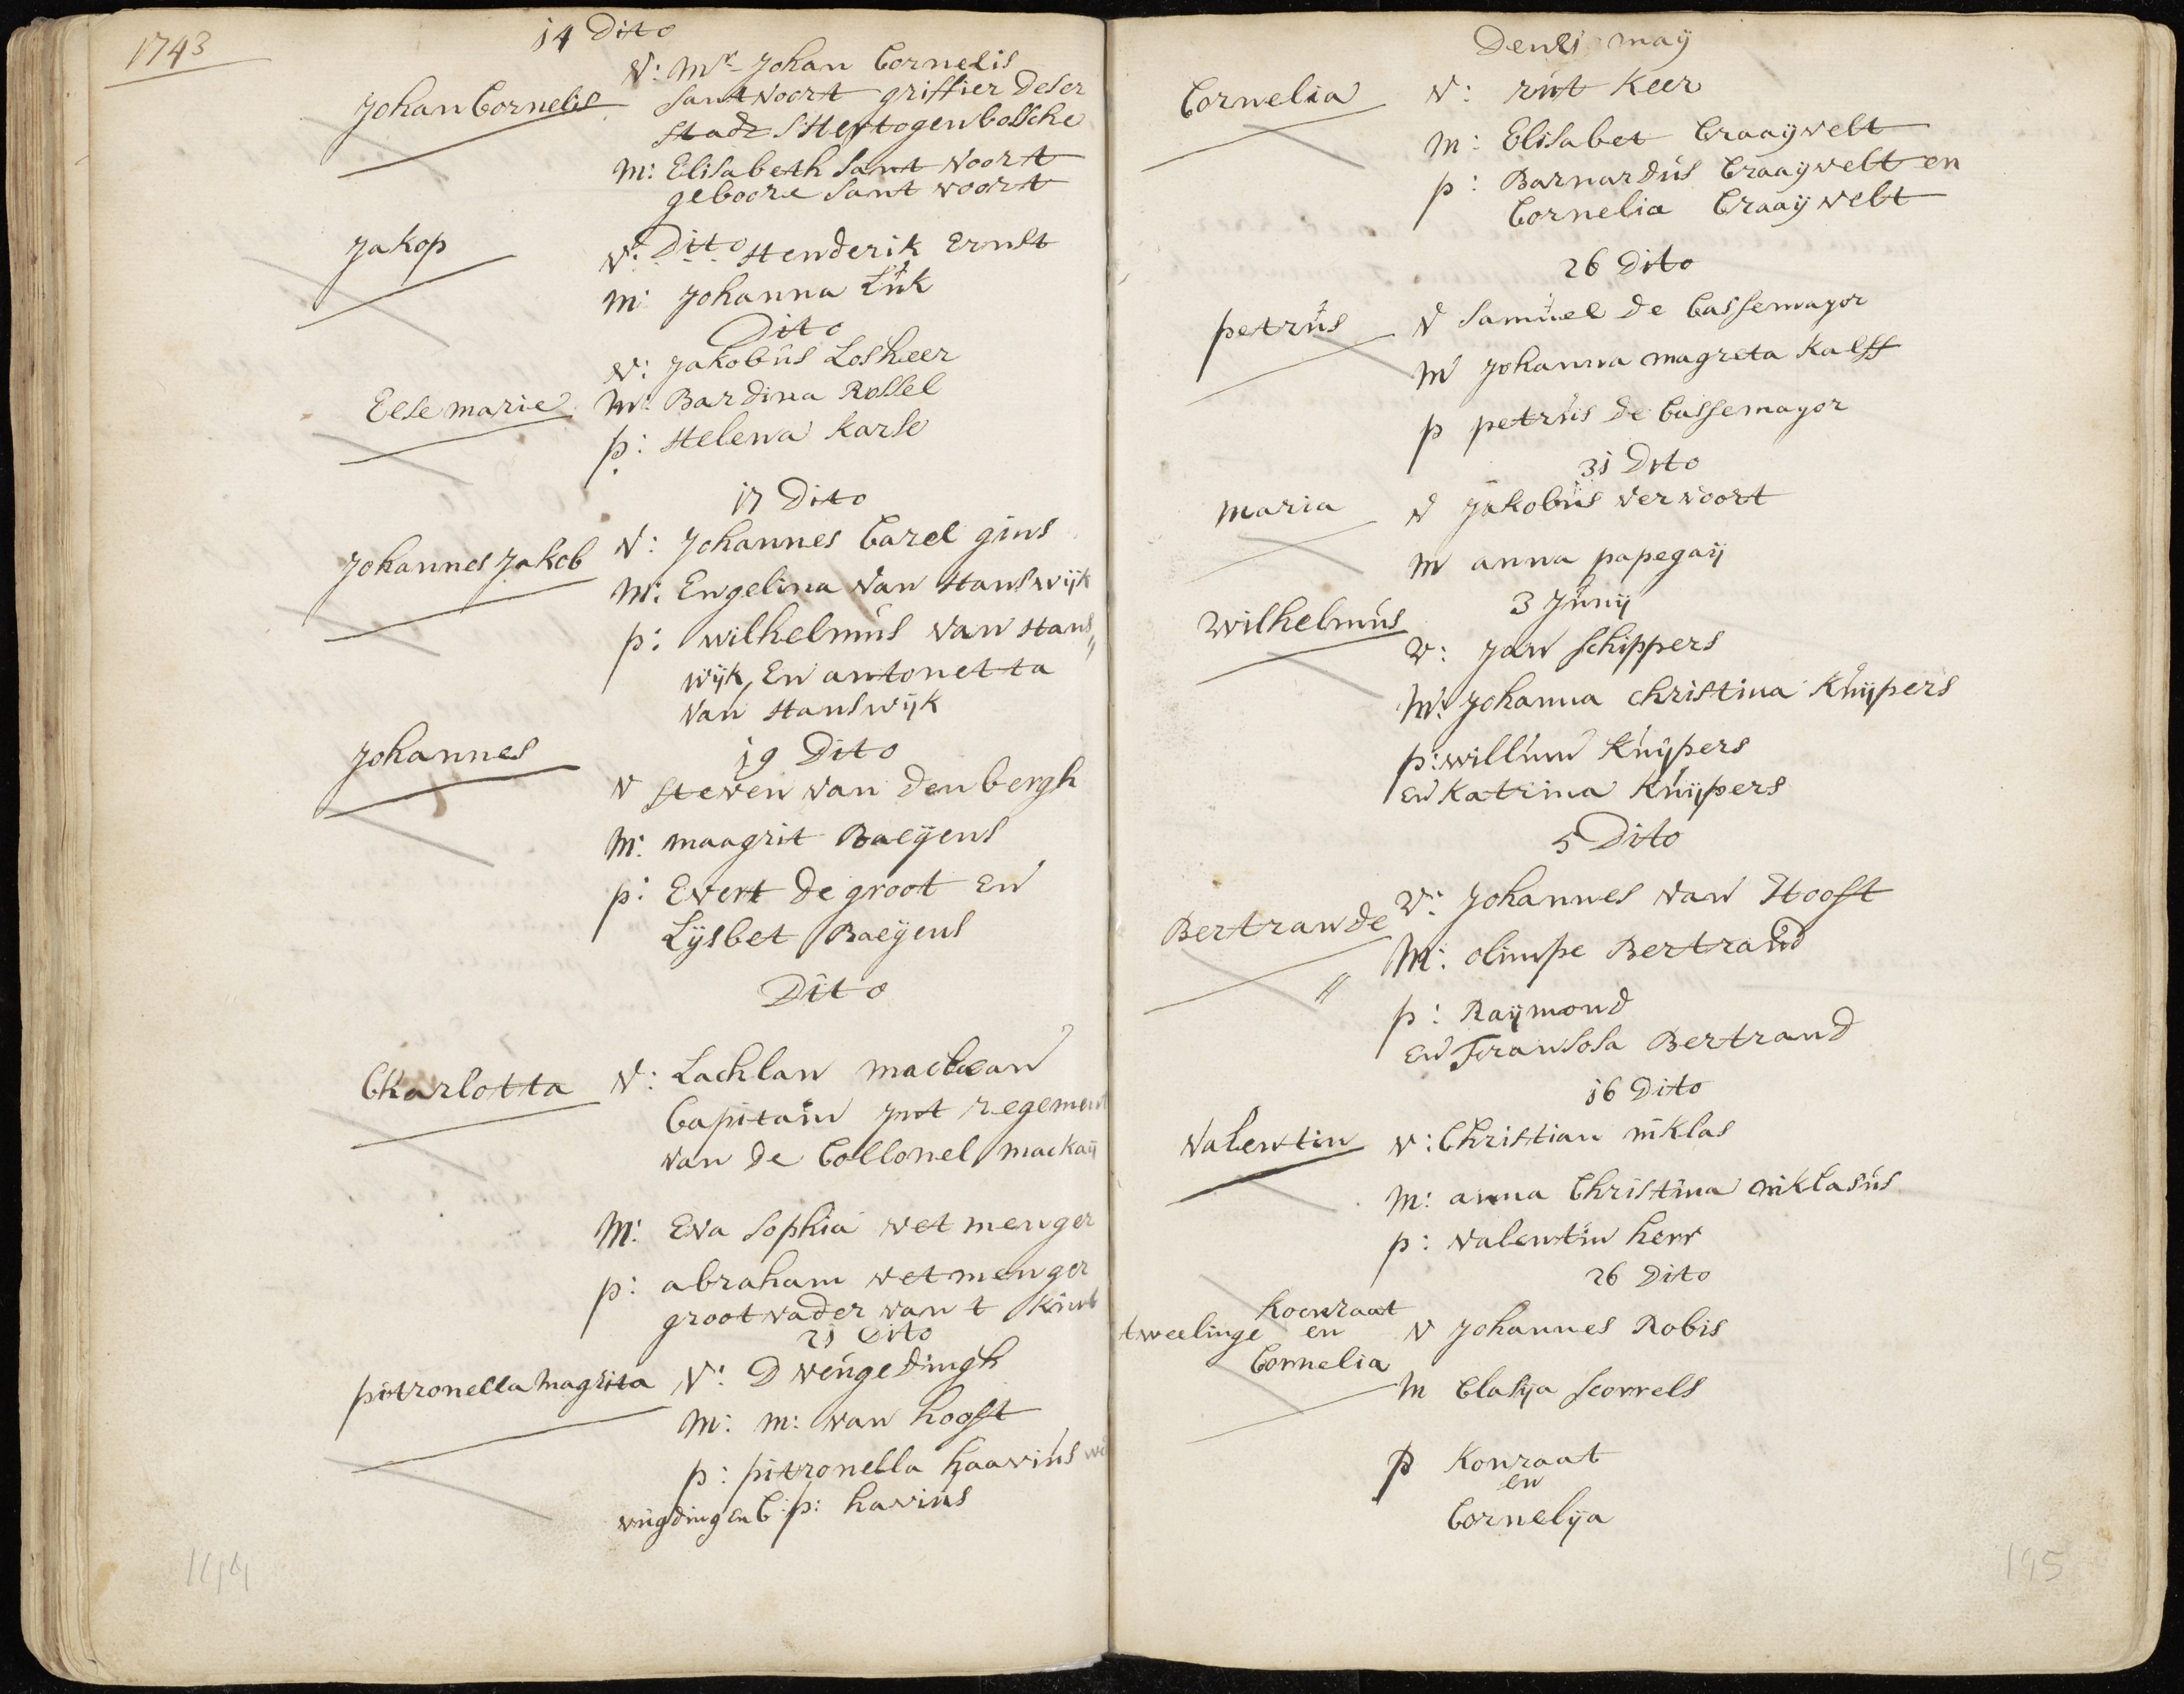 1743
14 Dito
Johan Cornelis
V: Mr Johan Cornelis
Santvoort griffier deser
Stadt SHertogenbossche
M: Elisabeth Sant Voort
geboore Sant voort
Jakop
V: Dito Henderik Ernst
M: Johanna Luk
Dito
V: Jakobus Losheer
Else marie
M: Bardina Rossel
p: Helena Karse
17 Dito
Johannes Jakob
V: Johannes Carel gins
M: Engelina Van Hanswijk
p: wilhelmus van Hans"
wijk, En antonetta
Van Hanswijk
Johannes
19 Dito
V Steven van den bergh
M: maagrit Baeijens
p: Evert de groot En
Lijsbet Baeijens
Dito
Charlotta
V: Lachlan maclean
Capitain int regement
van de Collonel mackaij
M: Eva Sophia wetmenger
p: abraham wetmenger
grootvader van t Kint
21 Dito
pitronella Magrita
V: D veugedingh
M: m: van hooft
p: pitronella haavius
vugding en C: p: havius
144
Den 21 may
Cornelia
V: rut Keer
M: Elisabet Craaijvelt
p: Barnardus Craaijvelt en
Cornelia Craaijvelt
26 Dito
petrus
V Samuel de Cassemayor
M Johanna magreta Kalff
p petrus de Cassemayor
31 Dito
maria
V Jakobus vervoort
M anna papegaij
3 Junij
Wilhelmus
V: Jan Schippers
M: Johanna christina Kuijpers
p: willem Kuijpers
en Katrina Kuijpers
5 Dito
Bertrande
V: Johannes van Hooft
M: olimpe Bertrand
"
p: Raijmond
en Fransosa Bertrand
16 Dito
Valentin
V: Christian niklas
M: anna Christina niklasus
p: valentin herr
26 Dito
Koenraat
tweelinge en
Cornelia
V Johannes Robis
M Clasija Scorrels
p Konraat
en
Cornelija
145